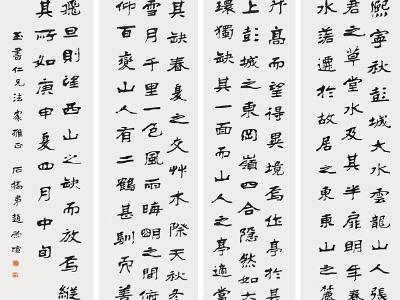 熙寧秋彭城大水雲龍山人張
君之草堂水及其半扉明年春
水落遷於故居之東東山之麓
升高而望得異境焉作亭於其
上彭城之東岡嶺四合隱然如大
環獨缺其一面而山人之亭適當
其缺春夏之交艸木際天秋冬
雪月千里一色風雨晦明之間俯
仰百變山人有二鶴甚馴而善
飛旦則望西山之缺而放焉縱
其所如庚申夏四月中旬
玉書仁兄法家雅正 石橋弟趙